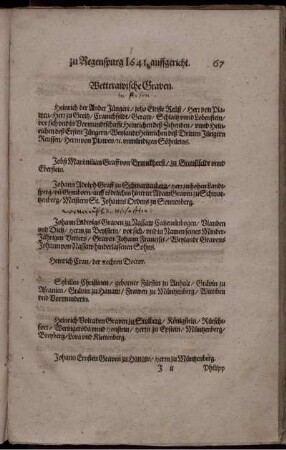 zu Regenspurg 1641. auffgericht. 67
Wetterawische Graven.
Heinrich der Ander Jünger/ jetzo Eltiste Reüß/ Herr von Pla-
wen/ Herr zu Greitz/ Crannichfeldt/ Geraw/ Schlaitz vnnd Lobenstein/
vor sich vnd in Vormundtschafft Heinrichen deß Fünfften/ vnnd Hein-
richen deß Ersten Jüngern/ Weylandt Heinrichen deß Dritten Jüngern
Reussen/ Herrn von Plawen/ rc. vnmündigen Söhnleins.
Jobst Maximilian Graff von Brunckhorst/ zu Gronßfeldt vnnd
Eberstein.
Johann Adolph Graff zu Schwartzenberg/ Herr zu Hohen Landt-
sperg/ vnd Gimborn/ auff absterben Herrn Adam Graven zu Schwar-
tzenberg/ Meistern S. Johannes Ordens zu Sonnenberg.
Johann Ludwigs Graven zu Nassaw Catzenelnbogen/ Vianden
vnd Dietz/ Herrn zu Beylstein/ vor sich/ vnd in Namen seiner Minder-
Jährigen Vettern/ Graven Johann Frantzen/ Weylandt Gravens
Johann von Nassaw hinderlassenen Sohns.
Heinrich Cran/ der Rechten Doctor.
Sybillen Christinen/ geborner Fürstin zu Anhalt/ Gräfin zu
Ascanien/ Gräfin zu Hanaw/ Frawen zu Müntzenberg/ Wittiben
vnd Vormünderin.
Heinrich Volraden Graven zu Stolberg/ Königstein/ Rütschi-
fort/ Wernigeroda vnnd Honstein/ Herrn zu Epstein/ Müntzenberg/
Breyberg/ Lora vnd Klettenberg.
Johann Ernsten Graven zu Hanaw/ Herrn zu Müntzenberg.
J ij Philipp